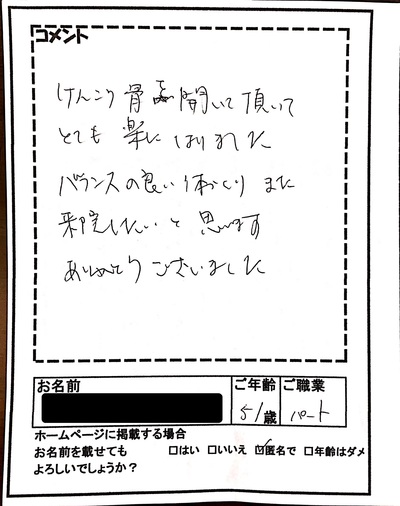 コメント
けんこう骨 開いて頂いて
とても 楽に なりました
バランスの良い 体づくり また
来院したい と 思います
ありがとうございました
お名前
ご年齢
ご職業
51歳
パート
ホームページに掲載する場合
お名前を載せても
よろしいでしょうか？
□はい □いいえ ☑匿名で □年齢はダメ